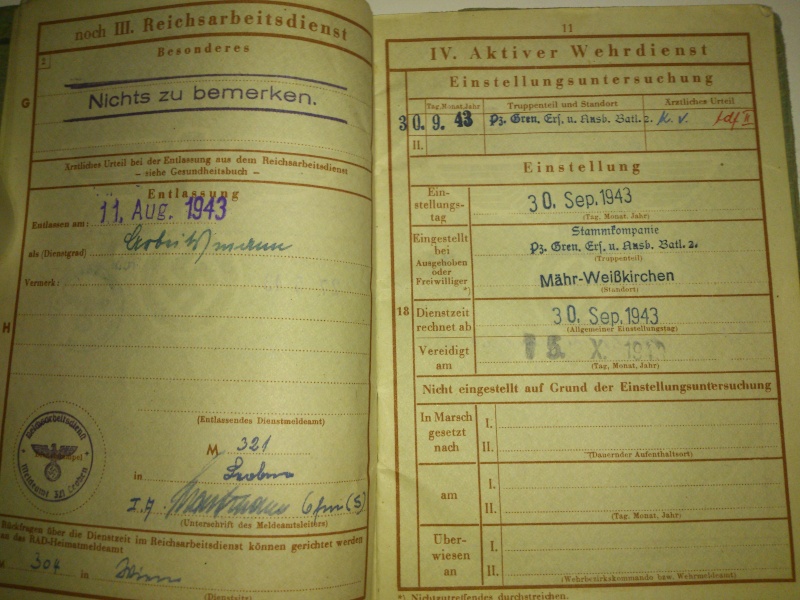 noch III. Reichsarbeitsdienst
Besonderes
2
G
Nichts zu bemerken.
Ärztliches Urteil bei der Entlassung aus dem Reichsarbeitsdienst
– siehe Gesundheitsbuch –
Entlassung
Entlassen am: 11. Aug. 1943
als (Dienstgrad) Arbeitsmann
Vermerk:
H
(Entlassendes Dienstmeldeamt)
Reichsarbeitsdienst
Meldeamt 321 Leoben
M 321
in Leoben
I.A.
(Unterschrift des Meldeamtsleiters)
Rückfragen über die Dienstzeit im Reichsarbeitsdienst können gerichtet werden
an das RAD-Heimatmeldeamt
M 304 in Wien
(Dienststelle)
11
IV. Aktiver Wehrdienst
Einstellungsuntersuchung
Tag, Monat, Jahr
Truppenteil und Standort
Ärztliches Urteil
30. 9. 43 Pz. Gren. Ers. u. Ausb. Batl. 2. k. v.
II.
Einstellung
Ein-
stellungs-
tag
30. Sep. 1943
(Tag, Monat, Jahr)
Eingestellt
bei
Ausgehoben
oder
Freiwilliger
*)
Stammkompanie
Pz. Gren. Ers. u. Ausb. Batl. 2.
(Truppenteil)
Mähr-Weißkirchen
(Standort)
18
Dienstzeit
rechnet ab
30. Sep. 1943
(Allgemeiner Einstellungstag)
Vereidigt
am
15. X.
(Tag, Monat, Jahr)
Nicht eingestellt auf Grund der Einstellungsuntersuchung
In Marsch
gesetzt
nach
I.
II.
(Dauernder Aufenthaltsort)
am
I.
II.
(Tag, Monat, Jahr)
Über-
wiesen
an
I.
II.
(Wehrbezirkskommando bzw. Wehrmeldeamt)
*) Nichtzutreffendes durchstreichen.